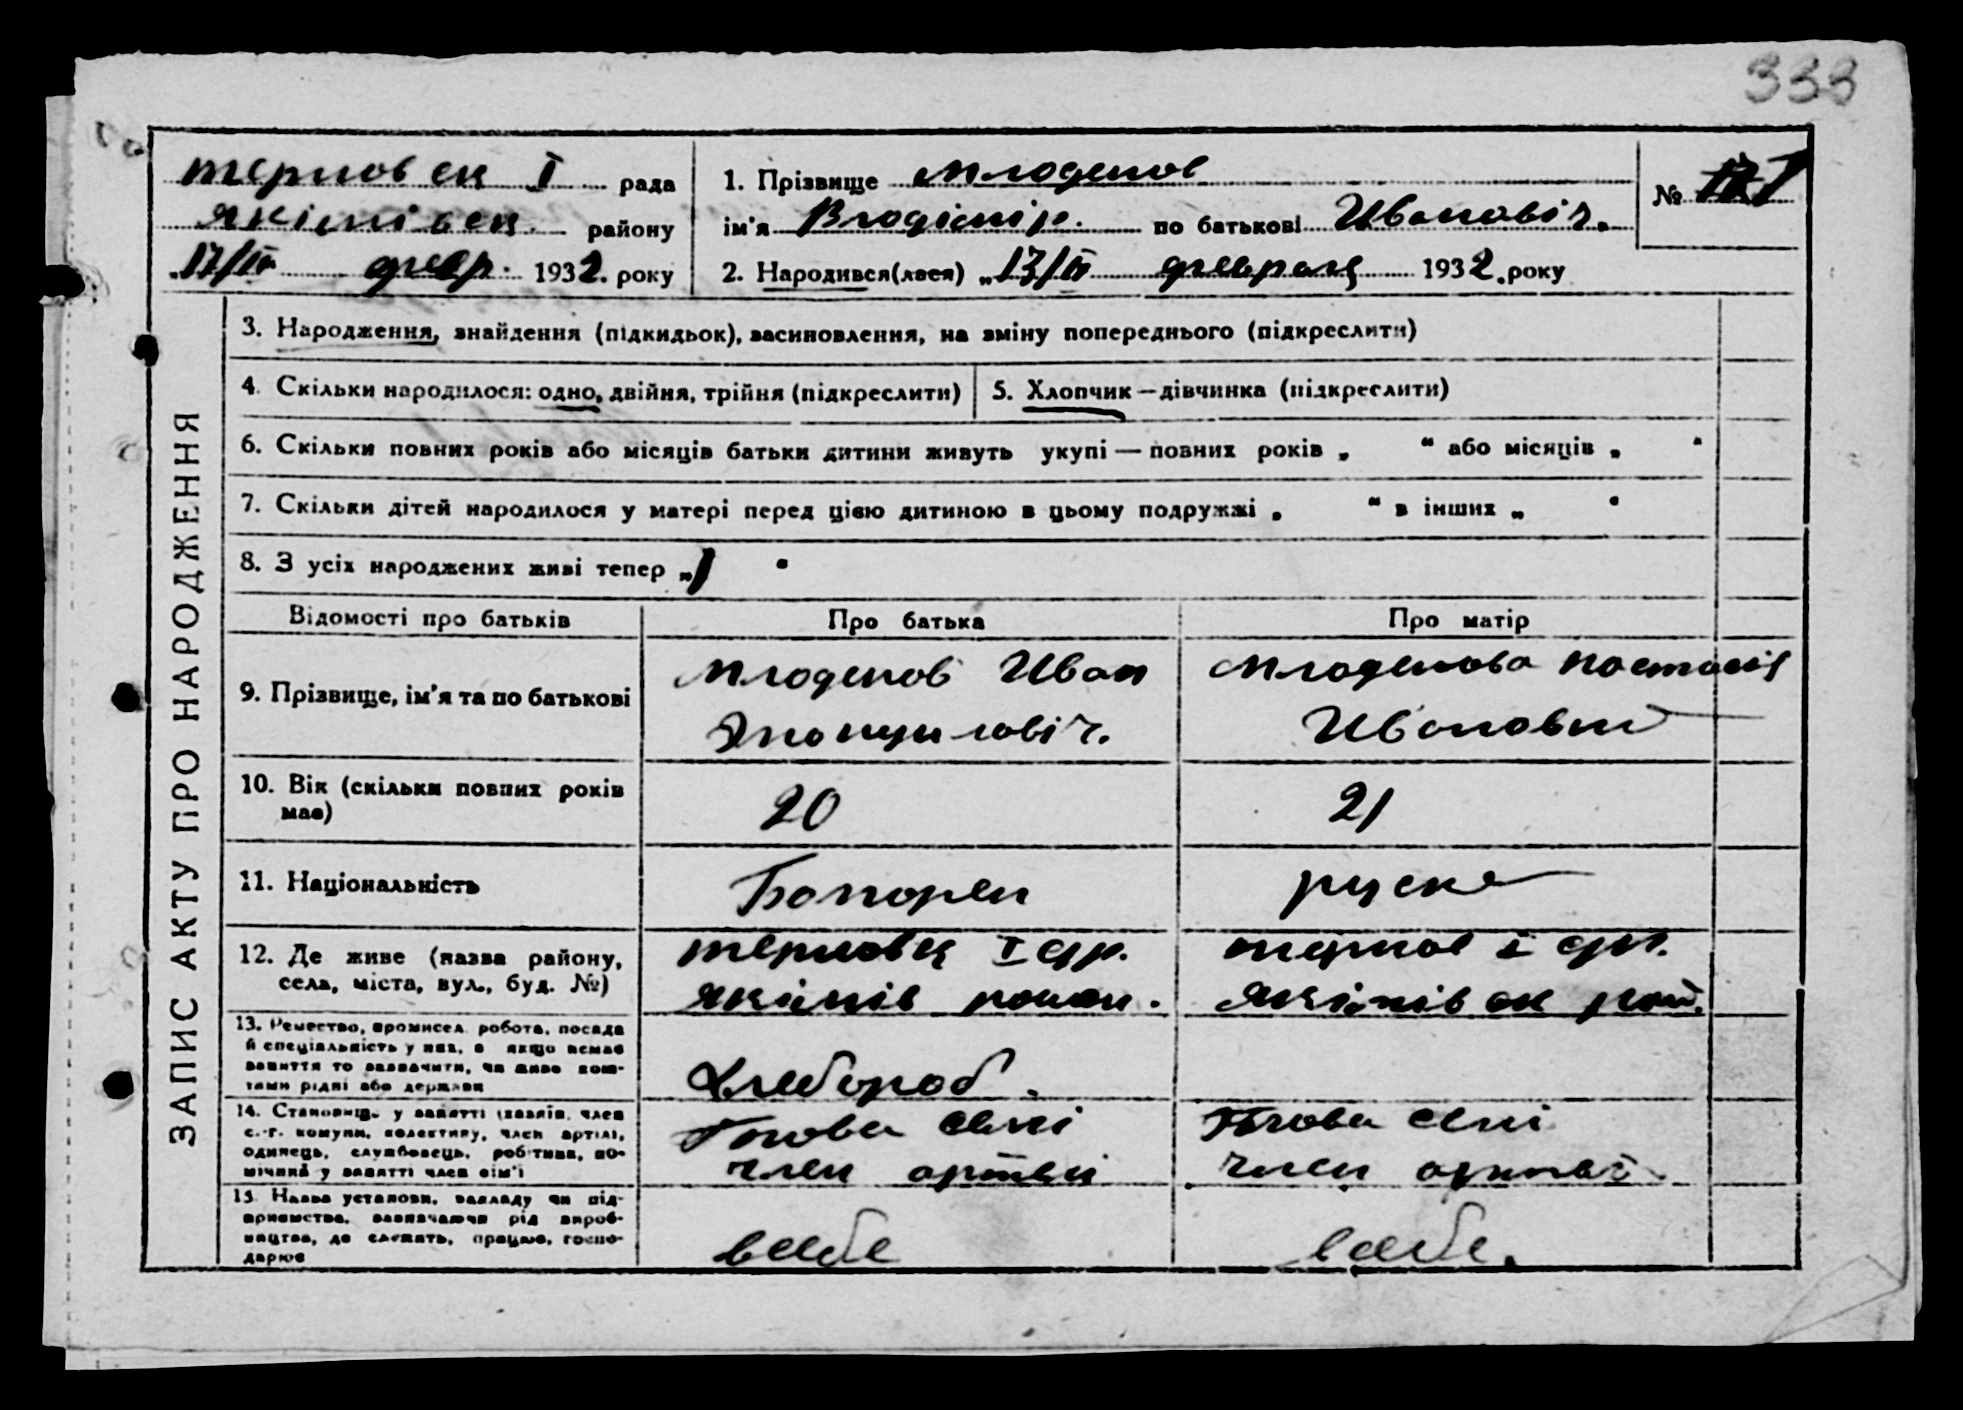 333
терновск I рада
якімівск. району
17/II февр. 1932. року
1. Прізвище Младенов
ім'я Владімір. по батькові Ивановіч.
2. Народився(лася) „13/II февраля 1932. року
№
ЗАПИС АКТУ ПРО НАРОДЖЕННЯ
3. Народження, знайдення (підкидьок), васиновлення, на зміну попереднього (підкреслити)
4. Скільки народилося: одно, двійня, трійня (підкреслити)
5. Хлопчик — дівчинка (підкреслити)
6. Скільки повних років або місяців батьки дитини живуть укупі — повних років „ “ або місяців „ “
7. Скільки дітей народилося у матері перед цією дитиною в цьому подружжі „ “ в інших „ “
8. З усіх народжених живі тепер „1 “
Відомості про батьків
Про батька
Про матір
9. Прізвище, ім'я та по батькові
Младенов Иван
Младенова
Ивановна
10. Вік (скільки повних років
має)
20
21
11. Національність
Болгорен
руска
12. Де живе (назва району,
села, міста, вул., буд. №)
терновц I
якімів
тернов I
якімівск рай.
13. Ремество, промисел, робота, посада
й спеціальність у них, а якщо немає
заняття то зазначити, чи живе кош-
тами рідні або держави
Хлебороб.
14. Становище у занятті (хазяїн, член
с.-г. комуни, колективу, член артілі,
одинець, службовець, робітник, по-
мічник у занятті член сім'ї
Глова семі
член артелі
Глова семі
член артелі
15. Назва установи, закладу чи під-
приємства, зазначаючи рід вироб-
ництва, де служить, працює, госпо-
дарює
в себе
в себе.